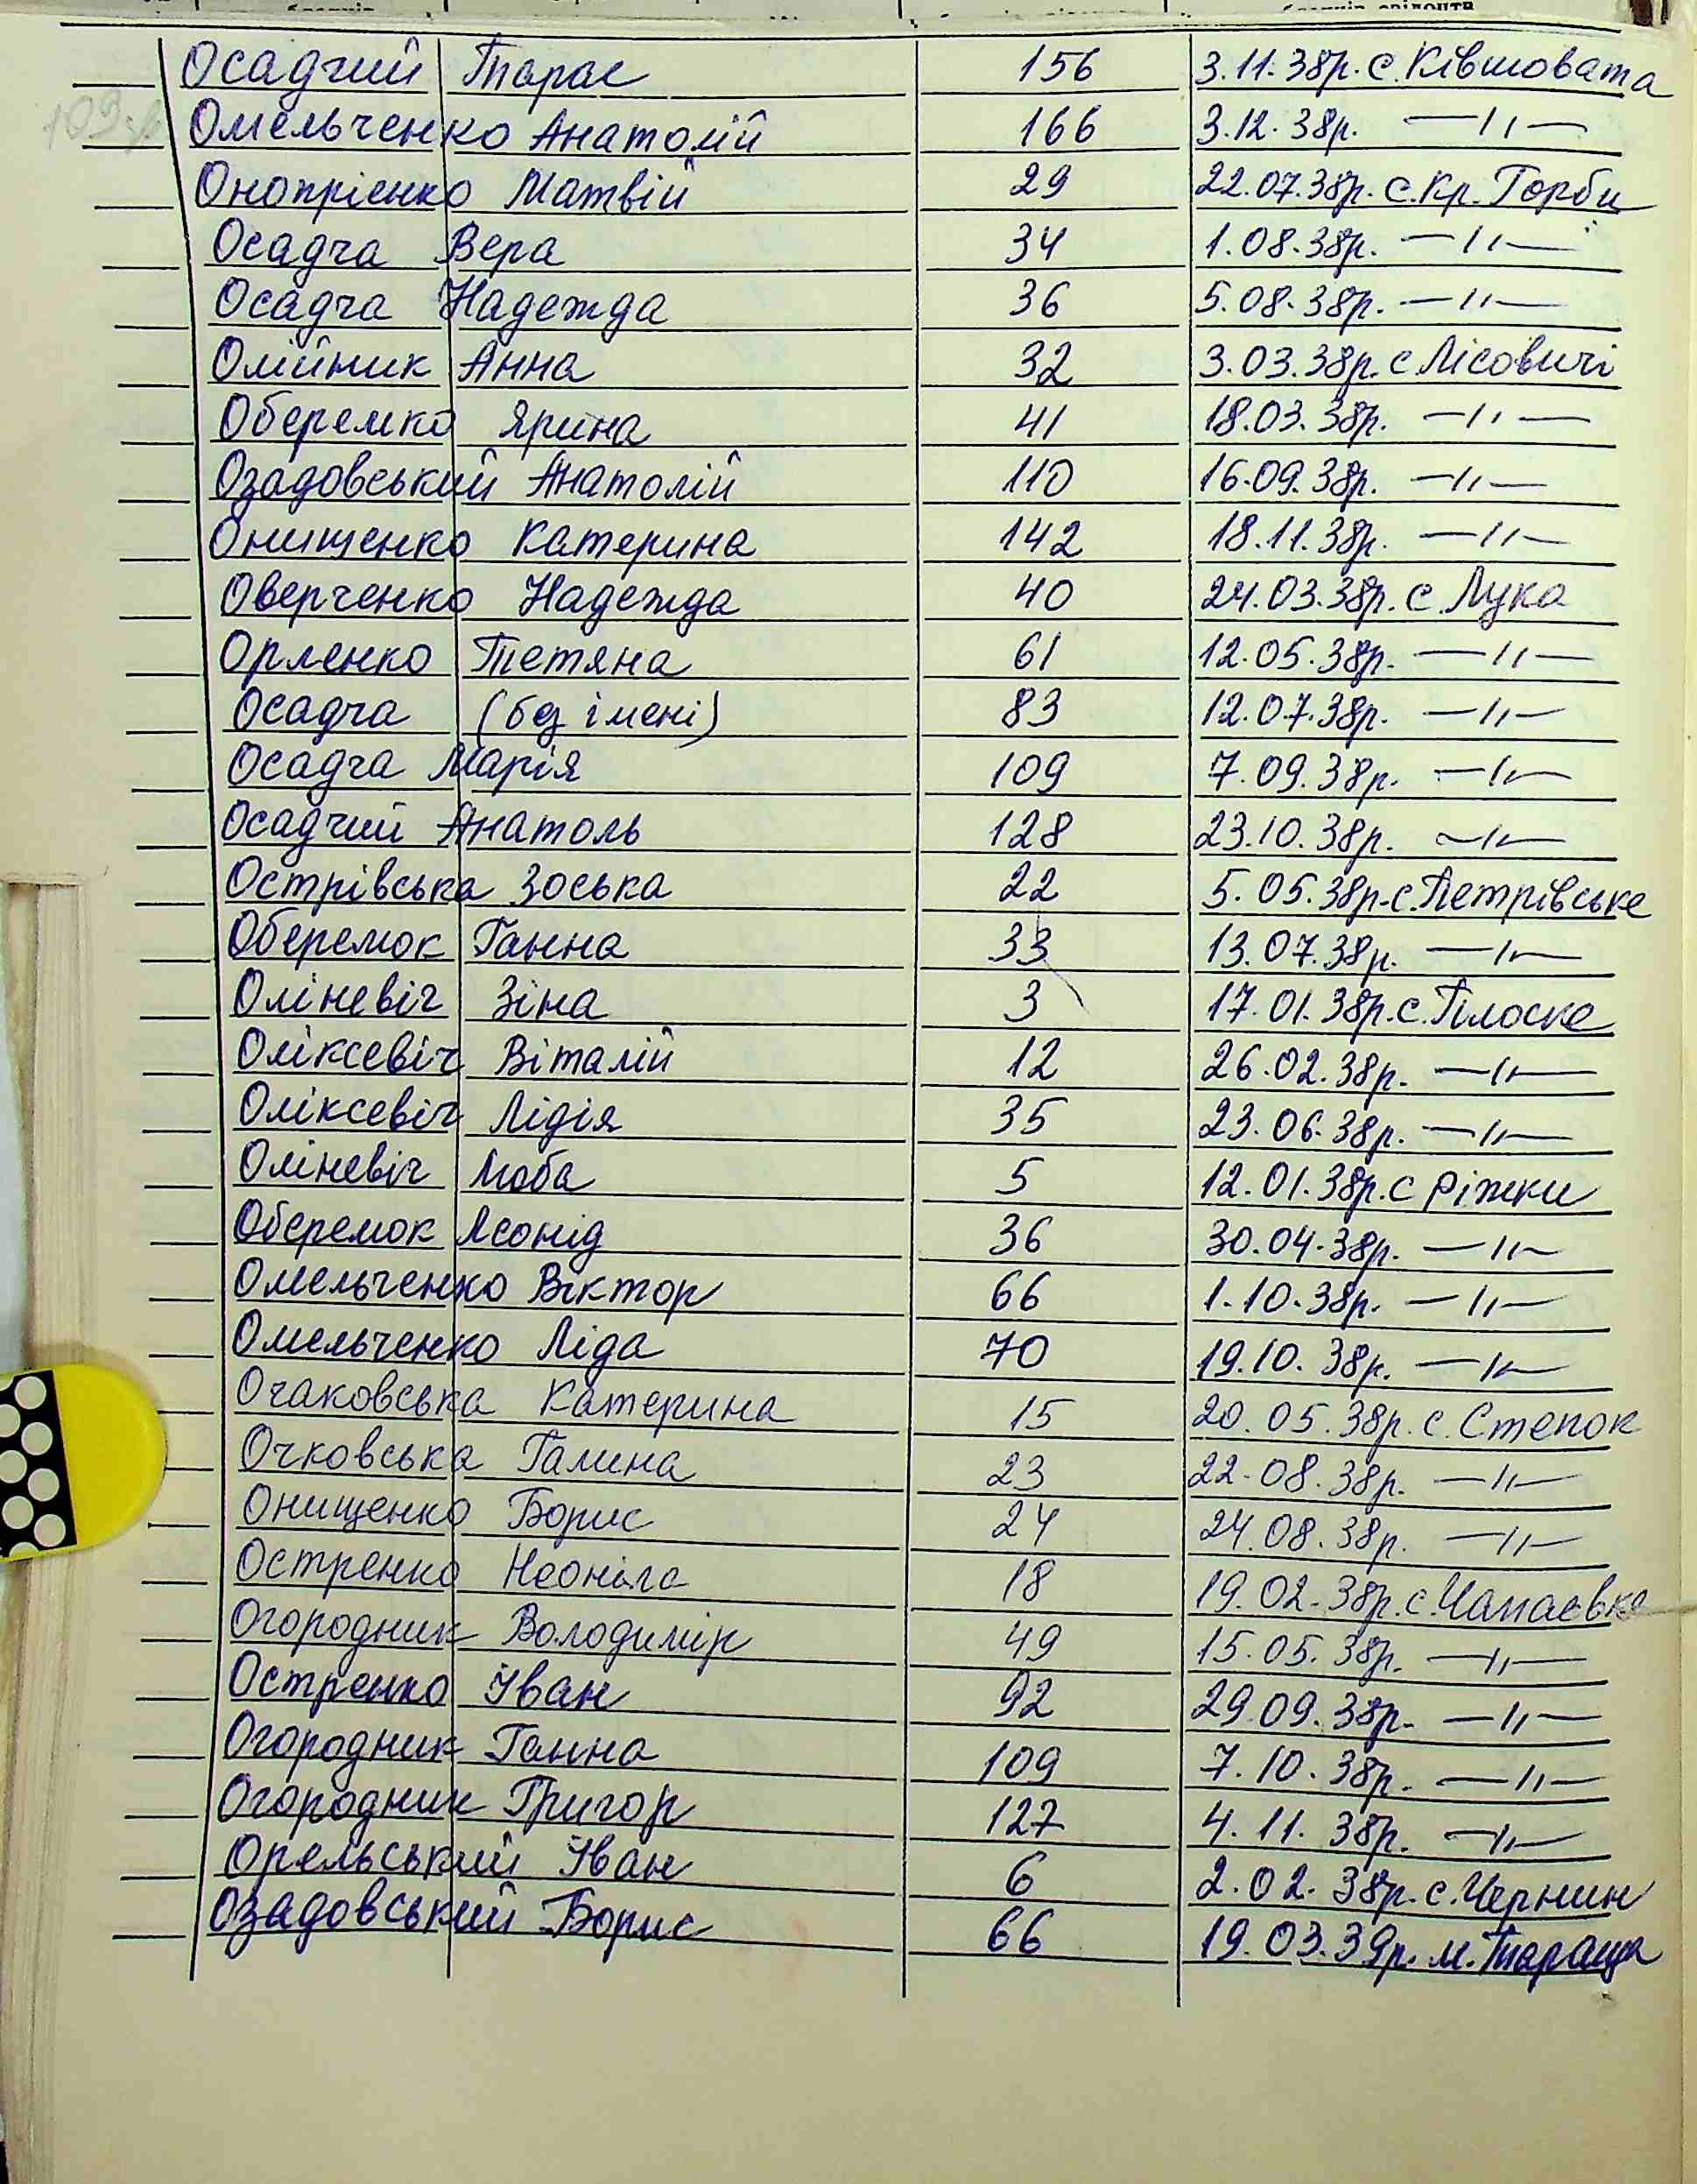 Осадчий Тарас 156 3.11.38р. с. Ківшовата
Омельченко Анатолій 166 3.12.38р. —//—
Онопрієнко Матвій 29 22.07.38р. с. Кр. Горби
Осадча Вера 34 1.08.38р. —//—
Осадча Надежда 36 5.08.38р. —//—
Олійник Анна 32 3.03.38р. с Лісовичі
Оберемко Ярина 41 18.03.38р. —//—
Озадовський Анатолій 110 16.09.38р. —//—
Онищенко Катерина 142 18.11.38р. —//—
Оверченко Надежда 40 24.03.38р. с. Лука
Орленко Тетяна 61 12.05.38р. —//—
Осадча (без імені) 83 12.07.38р. —//—
Осадча Марія 109 7.09.38р. —//—
Осадчий Анатоль 128 23.10.38р. —//—
Острівська Зоська 22 5.05.38р. с. Петрівське
Оберемок Ганна 33 13.07.38р. —//—
Оліневіч Зіна 3 17.01.38р. с. Плоске
Оліксевіч Віталій 12 26.02.38р. —//—
Оліксевіч Лідія 35 23.06.38р. —//—
Оліневіч Люба 5 12.01.38р. с Ріжки
Оберемок Леонід 36 30.04.38р. —//—
Омельченко Віктор 66 1.10.38р. —//—
Омельченко Ліда 70 19.10.38р. —//—
Очаковська Катерина 15 20.05.38р. с. Степок
Очковська Галина 23 22.08.38р. —//—
Онищенко Борис 24 24.08.38р. —//—
Остренко Неоніла 18 19.02.38р. с. Чапаєвка
Огородник Володимір 49 15.05.38р. —//—
Остренко Іван 92 29.09.38р. —//—
Огородник Ганна 109 7.10.38р. —//—
Огородник Григор 127 4.11.38р. —//—
Орельський Іван 6 2.02.38р. с. Чернин
Озадовський Борис 66 19.03.39р. м. Тараща